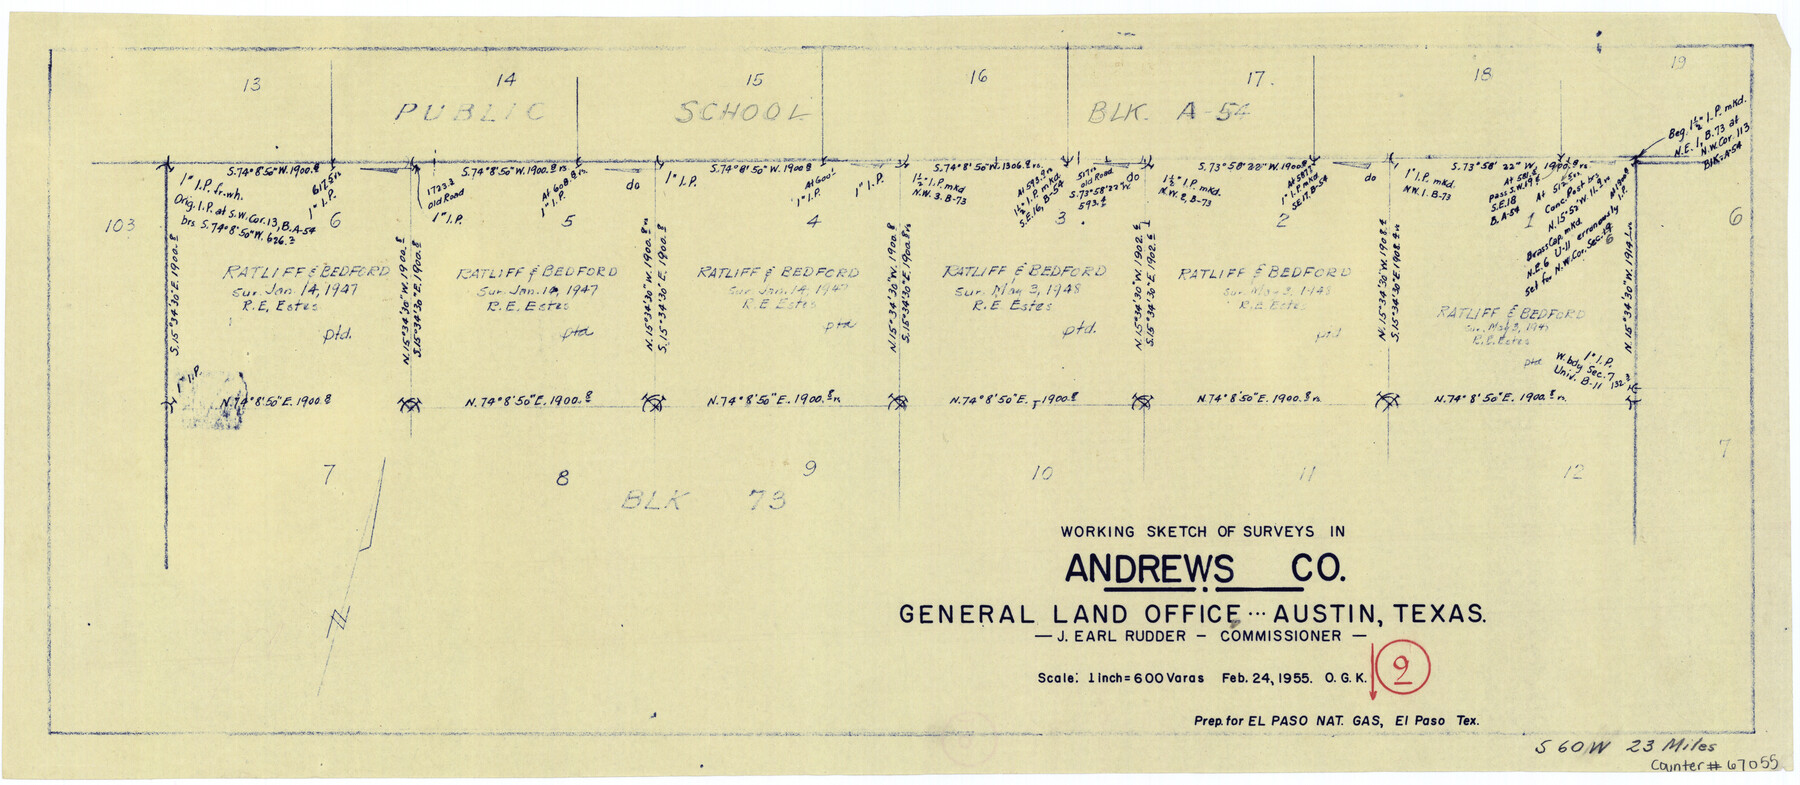 13 14 15 16 17. 18 19
PUBLIC SCHOOL BLK. A-54
Beg. 1½" I.P. mkd.
N.E. 1, B.73 at
N.W. Cor. 113
BLK-A-54
S.74°8'50"W. 1900.8
617.5 vrs
1" I.P.
1" I.P. fr. wh.
Orig. I.P. at S.W. Cor. 13, B.A-54
brs S.74°8'50"W. 626.3
103
6
S.74°8'50"W. 1900.8 vrs
1723.3
Old Road
1" I.P.
At 608.8 vrs.
1" I.P.
do
5
S.74°8'50"W. 1900.8
1" I.P.
At 600.1
1" I.P.
1" I.P.
4
S.74°8'50"W. 1306.8 vrs.
1½" I.P. mkd
N.W. 3, B-73
At 593.9 vrs
1½" I.P. mkd.
S.E. 16, B-54
517 vrs
Old Road
S.73°58'22"W
593.4
do
3
S.73°58'22"W. 1900.8
1½" I.P. mkd.
N.W. 2, B-73
At 587.2
1" I.P. mkd
SE.17, B-54
do
2
S.73°58'22"W. 1900.8 vrs
1" I.P. mkd.
N.W. 1. B-73
At 581.6
Pass S.W.19 &
S.E.18
B. A-54
At 512.5 vrs
Conc. Post brs
N.15°52'W. 11.3 vrs
Brass Cap. mkd.
N.E.6 U-11 erroneously
set for N.W. Cor. Sec. 19
At 1900.8
1" I.P.
1
6
S.15°34'30"E. 1900.8
N.15°34'30"W. 1900.8
S.15°34'30"E. 1900.8
N.15°34'30"W. 1900.8 vrs
S.15°34'30"E. 1900.8
N.15°34'30"W. 1900.8
S.15°34'30"E. 1900.8 vrs
N.15°34'30"W. 1902.6
S.15°34'30"E. 1902.6
N.15°34'30"W. 1908.4
S.15°34'30"E. 1908.4 vrs
N.15°34'30"W. 1914.1 vrs
RATLIFF & BEDFORD
Sur. Jan. 14, 1947
R.E. Estes
ptd.
RATLIFF & BEDFORD
Sur. Jan. 14, 1947
R.E. Estes
ptd
RATLIFF & BEDFORD
Sur. Jan. 14, 1947
R.E. Estes
ptd
RATLIFF & BEDFORD
Sur. May 3, 1948
R.E. Estes
ptd.
RATLIFF & BEDFORD
Sur. May 3, 1948
R.E. Estes
ptd
RATLIFF & BEDFORD
Sur. May 3, 1947
R.E. Estes
ptd
1" I.P.
W. bdy Sec. 7
Univ. B-11 132.3
1" I.P.
N.74°8'50"E. 1900.8
N.74°8'50"E. 1900.8 vrs.
N.74°8'50"E. 1900.8 vrs
N.74°8'50"E. 1900.8
N.74°8'50"E. 1900.8 vrs
N.74°8'50"E. 1900.8 vrs.
7 8 9 10 11 12 7
BLK 73
WORKING SKETCH OF SURVEYS IN
ANDREWS CO.
GENERAL LAND OFFICE ... AUSTIN, TEXAS.
— J. EARL RUDDER — COMMISSIONER —
Scale: 1 inch = 600 Varas Feb. 24, 1955. O.G.K.
9
Prep. for EL PASO NAT. GAS, El Paso Tex.
S 60 W 23 Miles
Counter # 67055